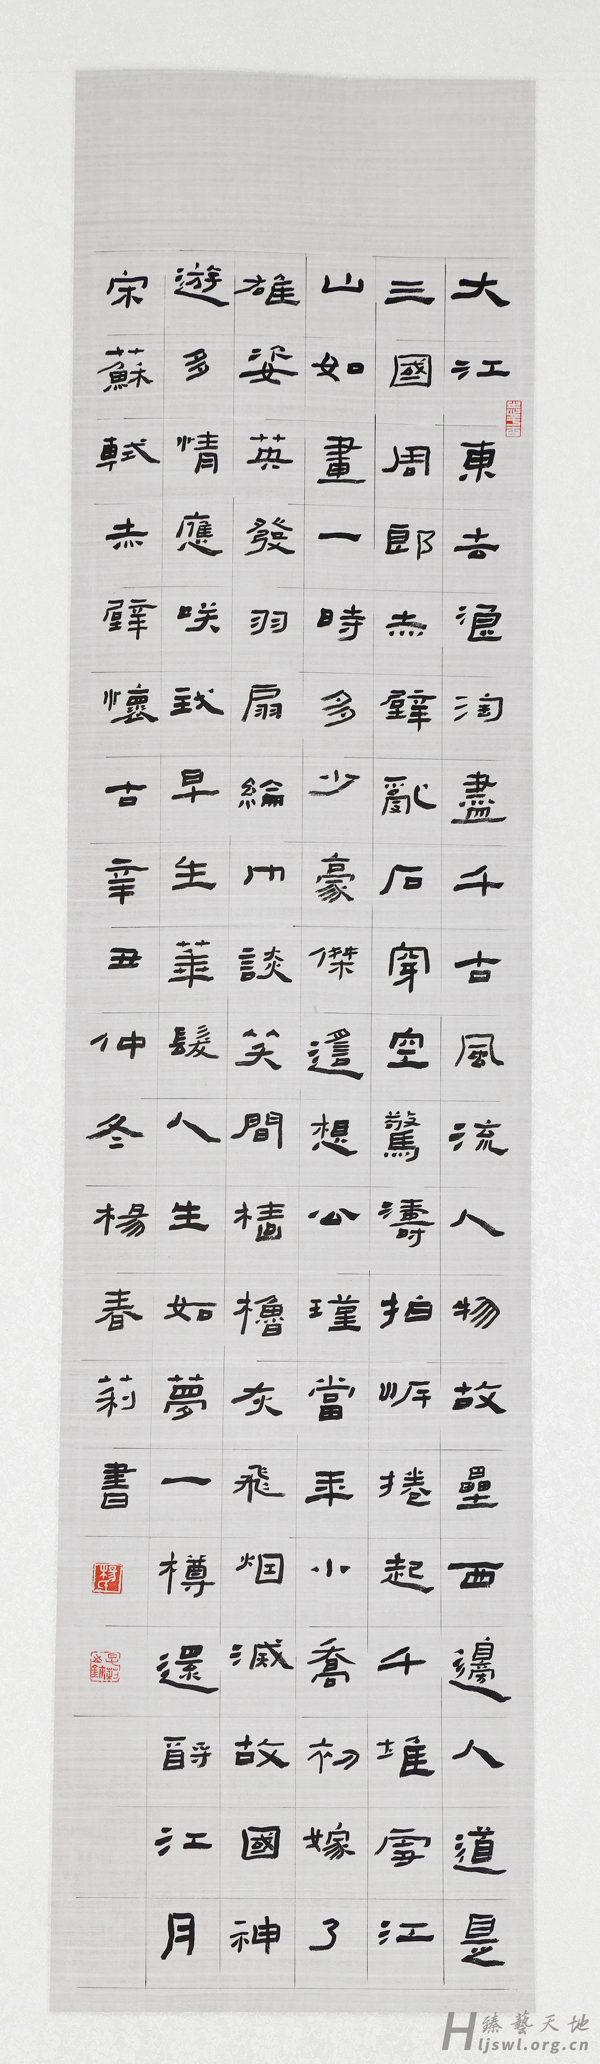 大江東去浪淘盡千古風流人物故壘西邊人道是
三國周郎赤壁亂石穿空驚濤拍岸捲起千堆雪江
山如畫一時多少豪傑遥想公瑾當年小喬初嫁了
雄姿英發羽扇綸巾談笑間檣櫓灰飛烟滅故國神
遊多情應咲我早生華髮人生如夢一樽還酹江月
宋蘇軾赤壁懷古辛丑仲冬楊春莉書
臻藝天地
Hljswl.org.cn